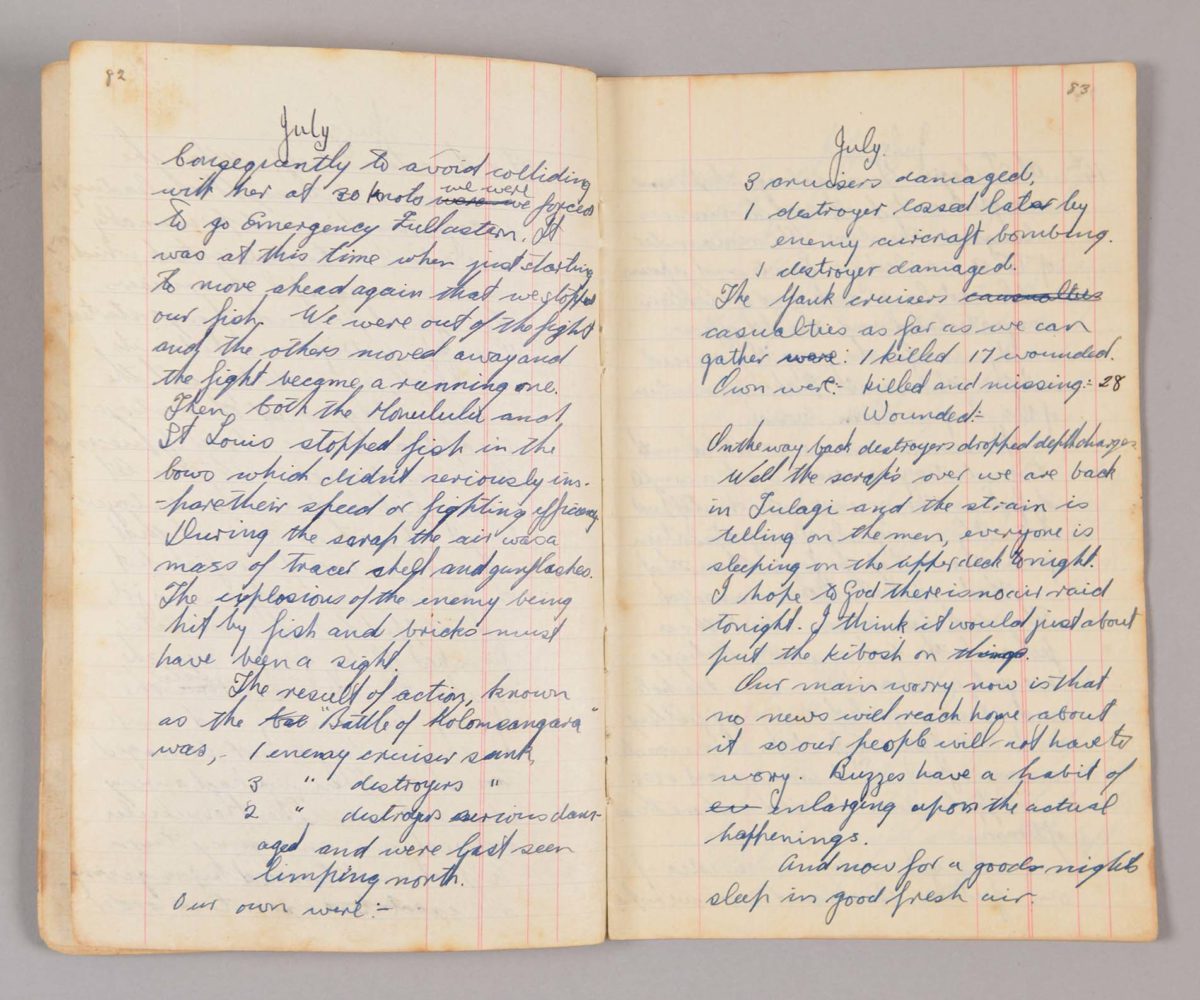 82
July
Consequantly to avoid colliding
with her at 30 knots we were were we forced
to go Emergency Fullastern. It
was at this time when just starting
to move ahead again that we stopped
our fish. We were out of the fight
and the others moved away and
the fight became a running one.
Then both the Honululu and
St Louis stopped fish in the
bows which didn't seriously im-
-pare their speed or fighting efficiency
During the scrap the air was a
mass of tracer shell and gunflashes.
The explosions of the enemy being
hit by fish and bricks must
have been a sight.
The result of action, known
as the bat "Battle of Kolomcangara"
was,- 1 enemy cruiser sunk,
3 " destroyers "
2 " destroyers serious dam-
aged and were last seen
limping north.
Our own were:-
83
July.
3 cruisers damaged,
1 destroyer lossed later by
enemy aircraft bombing.
1 destroyer damaged.
The Yank cruisers causualties
casualties as far as we can
gather were: 1 killed 17 wounded.
Own were:- killed and missing:- 28
Wounded:-
On the way back destroyers dropped depth charges
Well the scrap's over we are back
in Tulagi and the strain is
telling on the men, everyone is
sleeping on the upper deck tonight.
I hope to God there is no air raid
tonight. I think it would just about
put the kibosh on things.
Our main worry now is that
no news will reach home about
it so our people will not have to
worry. Buzzes have a habit of
en enlarging upon the actual
happenings.
And now for a good nights
sleep in good fresh air.